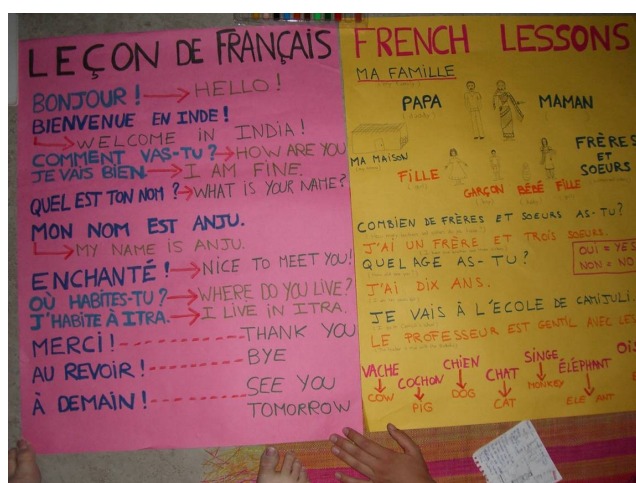 LEÇON DE FRANÇAIS
BONJOUR ! → HELLO !
BIENVENUE EN INDE !
→ WELCOME IN INDIA !
COMMENT VAS-TU ? → HOW ARE YOU
JE VAIS BIEN. → I AM FINE.
QUEL EST TON NOM ? → WHAT IS YOUR NAME?
MON NOM EST ANJU.
→ MY NAME IS ANJU.
ENCHANTÉ ! → NICE TO MEET YOU!
OÙ HABITES-TU ? → WHERE DO YOU LIVE?
J'HABITE À ITRA. → I LIVE IN ITRA.
MERCI ! THANK YOU
AU REVOIR ! BYE
À DEMAIN ! SEE YOU
TOMORROW
FRENCH LESSONS
MA FAMILLE
PAPA MAMAN
MA MAISON
FRÈRES
ET
SOEURS
FILLE GARÇON BÉBÉ FILLE
COMBIEN DE FRÈRES ET SOEURS AS-TU?
J'AI UN FRÈRE ET TROIS SOEURS.
OUI = YES
NON = NO
QUEL AGE AS-TU ?
J'AI DIX ANS.
JE VAIS À L'ÉCOLE DE
LE PROFESSEUR EST GENTIL AVEC
VACHE COCHON CHIEN CHAT SINGE ÉLÉPHANT
COW PIG DOG CAT MONKEY ELE ANT